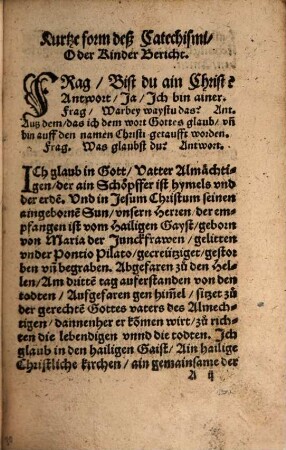 Kurtze form deß Catechismi/
Oder Kinder Bericht.
FRag/ Bist du ain Christ?
Antwort/ Ja/ Jch bin ainer.
Frag/ Warbey waystu das? Ant.
Auß dem/ das ich dem wort Gottes glaub/ vñ
bin auff den namen Christi getaufft worden.
Frag. Was glaubst du? Antwort.
ICh glaub in Gott/ Vatter Almächti-
gen/ der ain Schöpffer ist hymels vnd
der erdē. Vnd in Jesum Christum seinen
aingebornē Sun/ vnsern Herren/ der em-
pfangen ist vom Hailigen Gayst/ geborn
von Maria der Junckfrawen/ gelitten
vnder Pontio Pilato/ gecreütziget/ gestor
ben vñ begraben. Abgefaren zů den Hel-
len/ Am drittē tag auferstanden von den
todten/ Aufgefaren gen him̃el/ sitzet zů
der gerechtē Gottes vaters des Almech-
tigen/ dannenher er kom̃en wirt/ zů rich-
ten die lebendigen vnnd die todten. Jch
glaub in den hailigen Gaist/ Ain hailige
Christliche kirchen/ ain gemainsame der
A ij